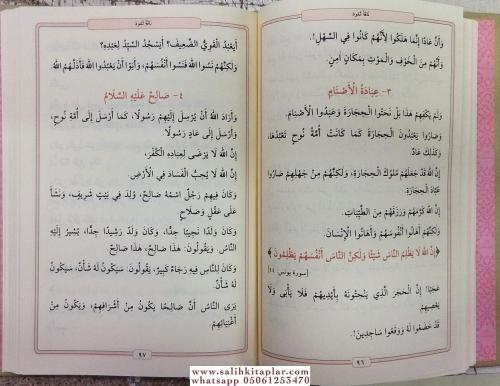 نَاقَةُ ثَمُودَ
وَأَنَّ عَادًا إِنَّمَا هَلَكُوا لِأَنَّهُمْ كَانُوا فِي السَّهْلِ!.
وَأَنَّهُمْ مِنَ الْخَوْفِ وَالْمَوْتِ بِمَكَانٍ أَمِنٍ.
٣- عِبَادَةُ الْأَصْنَامِ
وَلَمْ يَكْفِهِمْ هَذَا بَلْ نَحَتُوا الْحِجَارَةَ وَعَبَدُوا الْأَصْنَامَ.
وَصَارُوا يَعْبُدُونَ الْحِجَارَةَ كَمَا كَانَتْ أُمَّةُ نُوحٍ تَعْبُدُهَا،
وَكَذَلِكَ عَادٌ.
إِنَّ اللهَ قَدْ جَعَلَهُمْ مُلُوكَ الْحِجَارَةِ، وَلَكِنَّهُمْ مِنْ جَهْلِهِمْ صَارُوا
عُبَّادَ الْحِجَارَةِ.
إِنَّ اللهَ كَرَّمَهُمْ وَرَزَقَهُمْ مِنَ الطَّيِّبَاتِ.
وَلَكِنَّهُمْ أَهَانُوا أَنْفُوسَهُمْ وَأَهَانُوا الْإِنْسَانَ.
﴿إِنَّ اللهَ لَا يَظْلِمُ النَّاسَ شَيْئًا وَلَكِنَّ النَّاسَ أَنْفُسَهُمْ يَظْلِمُونَ﴾
[سورة يونس ٤٤]
عَجَبًا! إِنَّ الْحَجَرَ الَّذِي يَنْحِتُونَهُ بِأَيْدِيهِمْ فَلَا يَأْبَى وَلَا
يَعْصِيهِمْ.
قَدْ خَضَعُوا لَهُ وَوَقَعُوا سَاجِدِينَ!.
٩٦
نَاقَةُ ثَمُودَ
أَيَعْبُدُ الْقَوِيُّ الضَّعِيفَ؟ أَيَسْجُدُ السَّيِّدُ لِعَبْدِهِ؟
وَلَكِنَّهُمْ نَسُوا اللهَ فَنَسُوا أَنْفُسَهُمْ، وَأَبَوْا أَنْ يَعْبُدُوا اللهَ فَأَذَلَّهُمُ اللهُ.
٤- صَالِحٌ عَلَيْهِ السَّلَامُ
وَأَرَادَ اللهُ أَنْ يُرْسِلَ إِلَيْهِمْ رَسُولًا، كَمَا أَرْسَلَ إِلَى أُمَّةِ نُوحٍ،
وَأَرْسَلَ إِلَى عَادٍ رَسُولًا.
إِنَّ اللهَ لَا يَرْضَى لِعِبَادِهِ الْكُفْرَ.
إِنَّ اللهَ لَا يُحِبُّ الْفَسَادَ فِي الْأَرْضِ.
وَكَانَ فِيهِمْ رَجُلٌ اسْمُهُ صَالِحٌ، وُلِدَ فِي بَيْتٍ شَرِيفٍ، وَنَشَأَ
عَلَى عَقْلٍ وَصَلَاحٍ
وَكَانَ وَلَدًا نَجِيبًا جِدًّا، وَكَانَ وَلَدًا رَشِيدًا جِدًّا، يُشِيرُ إِلَيْهِ
النَّاسُ، وَيَقُولُونَ: هَذَا صَالِحٌ، هَذَا صَالِحٌ.
وَكَانَ لِلنَّاسِ فِيهِ رَجَاءٌ كَبِيرٌ، يَقُولُونَ: سَيَكُونُ لَهُ شَأْنٌ، سَيَكُونُ
لَهُ شَأْنٌ.
يَرَى النَّاسُ أَنَّ صَالِحًا يَكُونُ مِنْ أَشْرَافِهِمْ، وَيَكُونُ مِنْ
أَغْنِيَائِهِمْ.
٩٧
www.salihkitaplar.com
whatsapp 05061253470